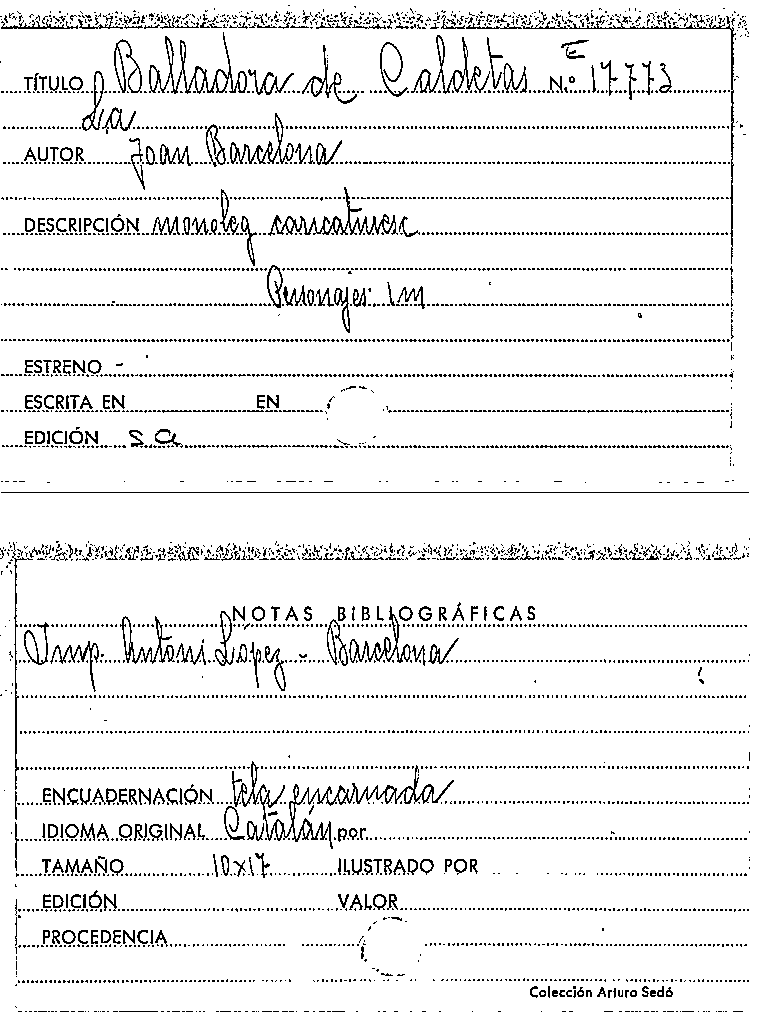 TÍTULO Balladora de Caldetas N.º E 17773
La
AUTOR Joan Barcelona
DESCRIPCIÓN monoleg caricaturesc
Personajes: 1 m
ESTRENO -
ESCRITA EN EN
EDICIÓN s a
NOTAS BIBLIOGRÁFICAS
Imp. Antoni López - Barcelona
ENCUADERNACIÓN tela encarnada
IDIOMA ORIGINAL Catalán por
TAMAÑO 10x17 ILUSTRADO POR
EDICIÓN VALOR
PROCEDENCIA
Colección Arturo Sedó